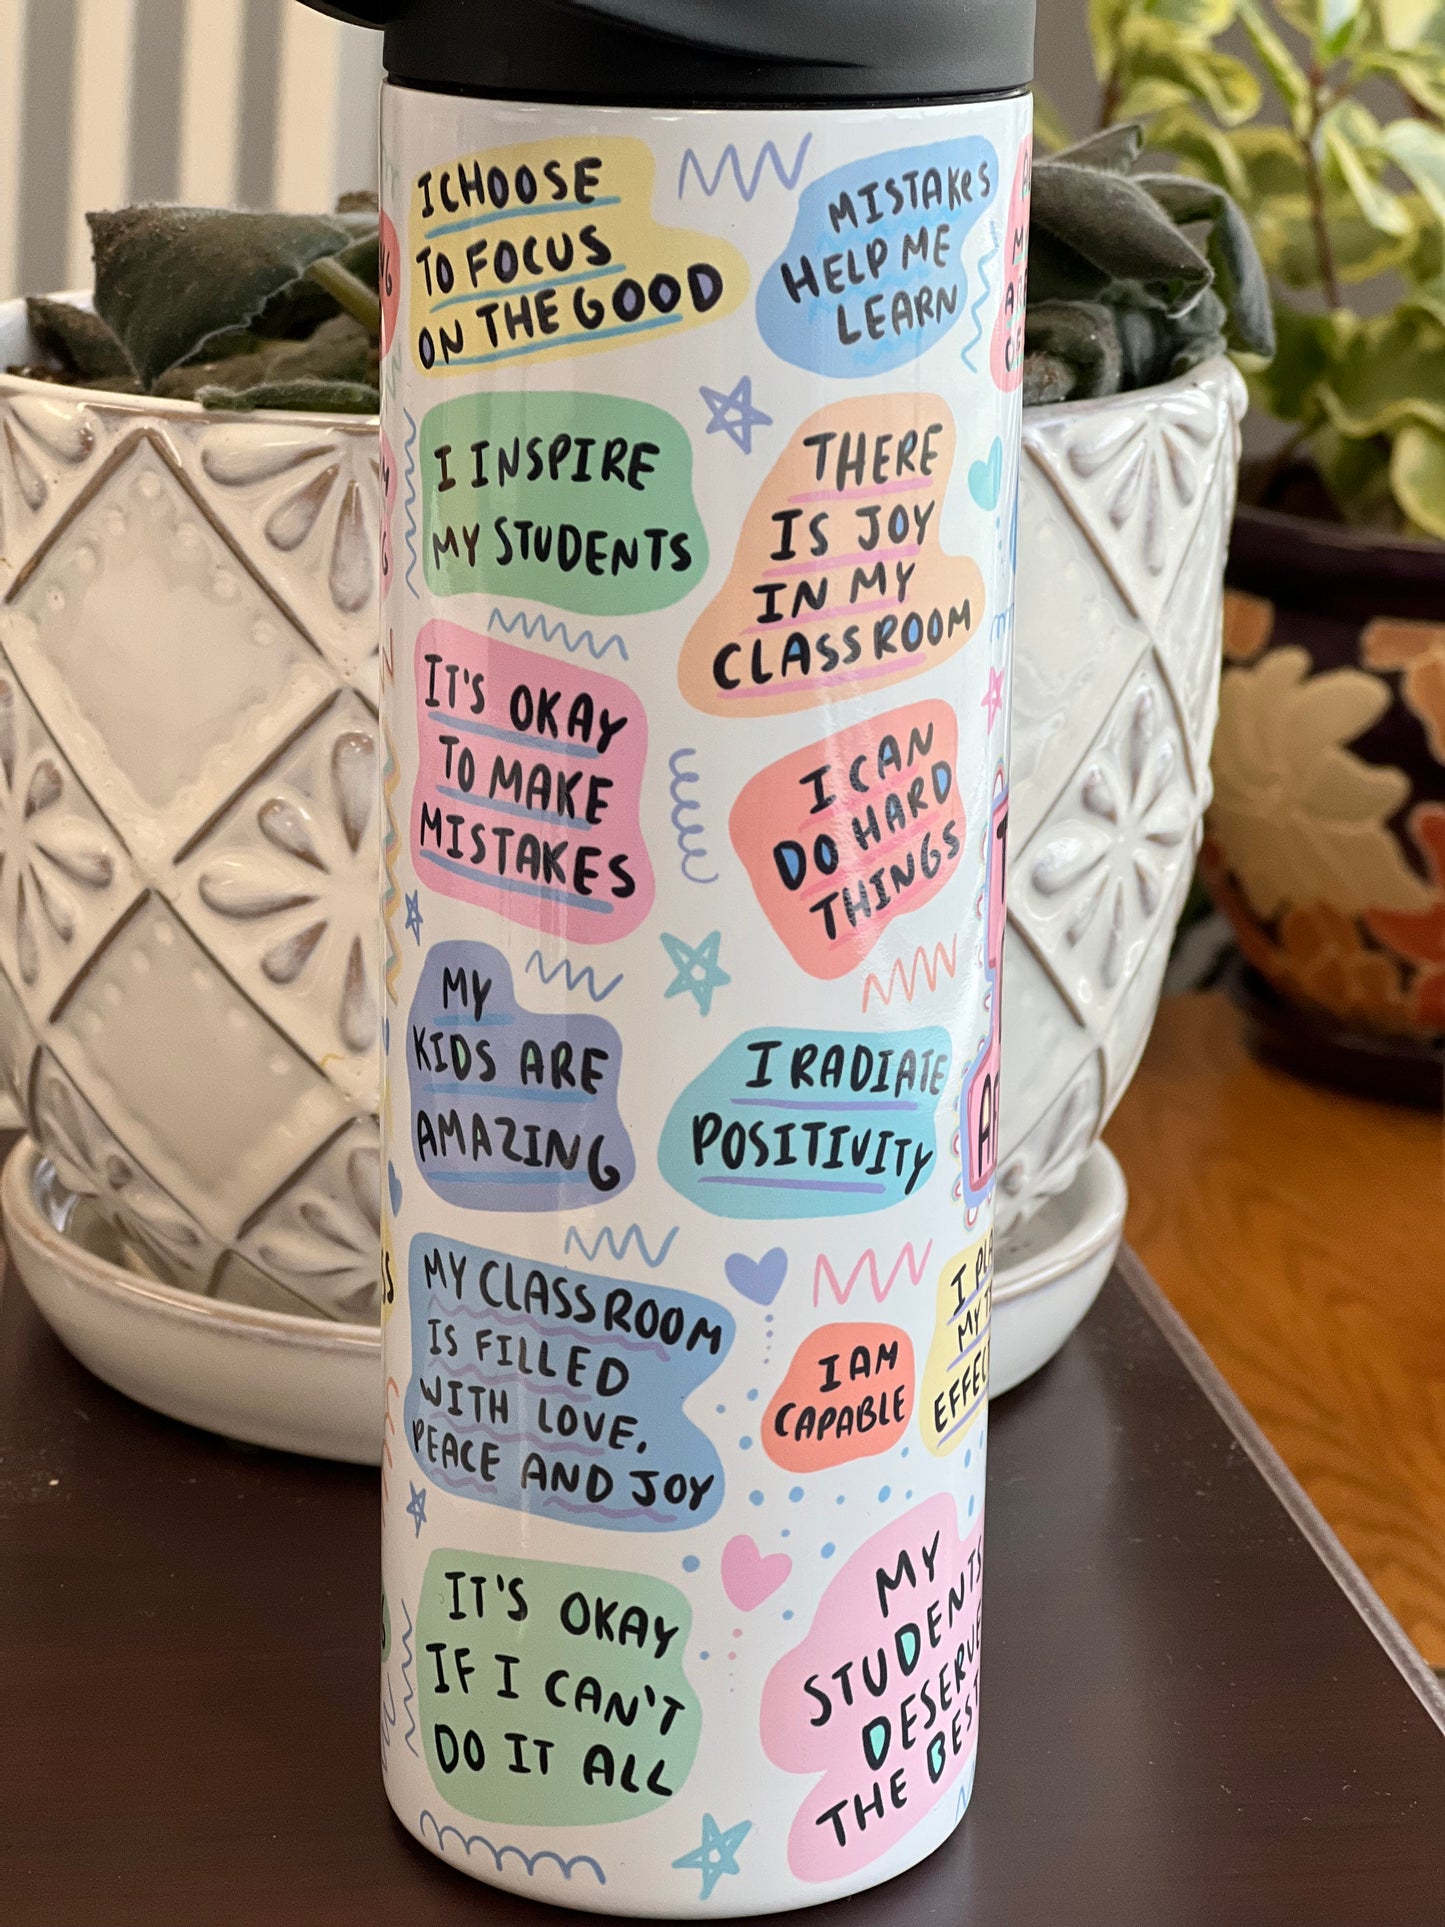 I CHOOSE
TO FOCUS
ON THE GOOD
MISTAKES
HELP ME
LEARN
I INSPIRE
MY STUDENTS
THERE
IS JOY
IN MY
CLASSROOM
IT'S OKAY
TO MAKE
MISTAKES
I CAN
DO HARD
THINGS
MY
KIDS ARE
AMAZING
I RADIATE
POSITIVITY
MY CLASSROOM
IS FILLED
WITH LOVE,
PEACE AND JOY
I AM
CAPABLE
I
MY
IT'S OKAY
IF I CAN'T
DO IT ALL
MY
STUDENTS
DESERVE
THE BEST